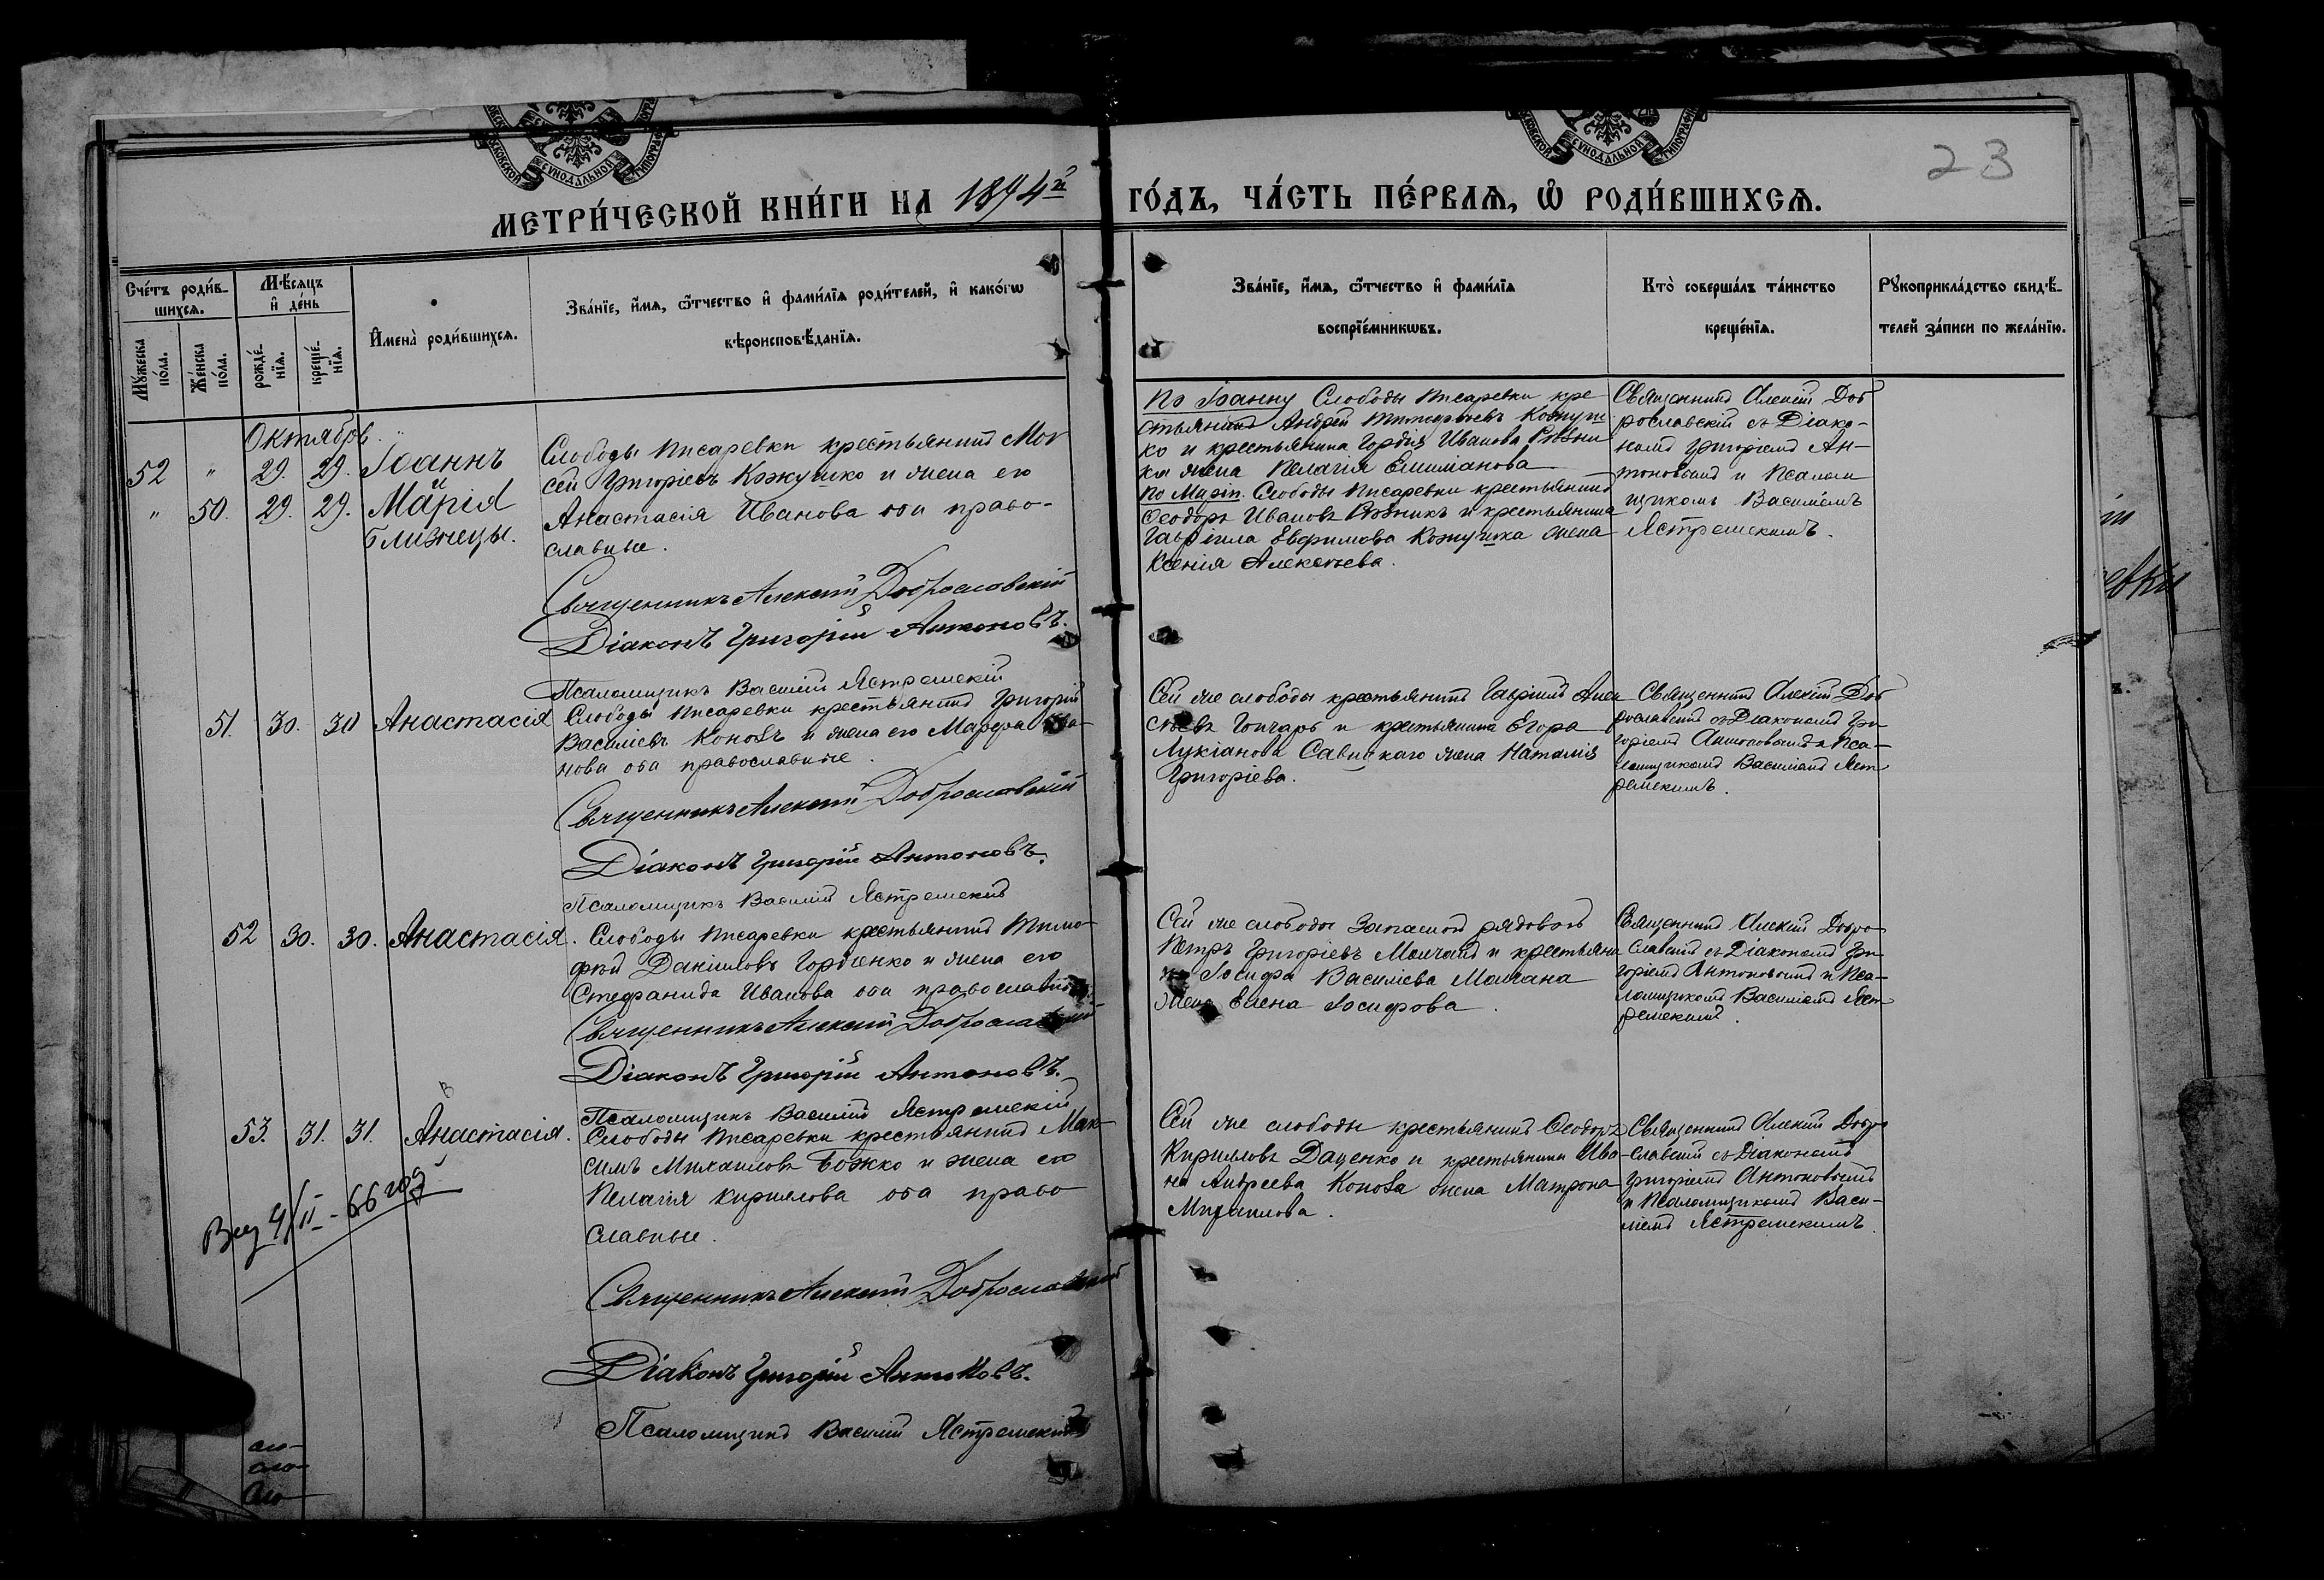 23
МЕТРИ́ЧЕСКОЙ КНИ́ГИ НА 1894й ГО́ДЪ, ЧА́СТЬ ПЕ́РВАѦ, Ѡ҆ РОДИ́ВШИХСѦ.
Сче́тъ роди́в-
шихся.
Мѣ́сяцъ
и҆ де́нь
Му́жеска
по́ла.
Же́нска
по́ла.
рожде́-
нїя.
креще́-
нїя.
И҆мена̀ роди́вшихся.
Зва́нїе, и҆́мя, ѻ҆́тчество и҆ фами́лїя роди́телей, и҆ како́гѡ
вѣроисповѣ́данїя.
Зва́нїе, и҆́мя, ѻ҆́тчество и҆ фами́лїя
воспрїе́мникѡвъ.
Кто̀ соверша́лъ та́инство
креще́нїя.
Рꙋкоприкла́дство свидѣ́-
телей за́писи по жела́нїю.
Октябрь
52 " 29. 29. Іоаннъ
и
" 50. 29. 29. Марія
близнецы.
Слободы Писаревки крестьянинъ Мои
сей Григоріевъ Кожушко и жена его
Анастасія Иванова оба право-
славные.
Священникъ Алексій Доброславскій
Діаконъ Григорій Антоновъ.
Псаломщикъ Василій Ястремскій
По Іоанну Слободы Писаревки кре
стьянинъ Андрей Тимофеевъ Кожуш
ко и крестьянина Гордія Иванова
жена Пелагія Емиліанова
По Маріи. Слободы Писаревки крестьянинъ
Ѳеодоръ Ивановъ и крестьянина
Гавріила Евфимова Кожушка жена
Ксенія Алексѣева.
Священникъ Алексій Доб
рославскій съ Діако-
номъ Григоріемъ Ан-
тоновымъ и Псалом
щикомъ Василіемъ
Ястремскимъ.
51. 30. 30 Анастасія
Слободы Писаревки крестьянинъ Григорій
Василіевъ Коновъ и жена его Марфа Ива-
нова оба православные.
Священникъ Алексій Доброславскій
Діаконъ Григорій Антоновъ.
Псаломщикъ Василій Ястремскій
Сей же слободы крестьянинъ Гавріилъ Алек
сѣевъ Гончаръ и крестьянина Егора
Лукіанова Савицкаго жена Наталія
Григоріева.
Священникъ Алексій Доб
рославскій съ Діакономъ Гри
горіемъ Антоновымъ и Пса-
ломщикомъ Василіемъ Яст
ремскимъ.
52 30. 30. Анастасія.
Слободы Писаревки крестьянинъ Тимо-
фей Даніиловъ Гордіенко и жена его
Стефанида Иванова оба православные.
Священникъ Алексій Доброславскій
Діаконъ Григорій Антоновъ.
Псаломщикъ Василій Ястремскій
Сей же слободы Запасной рядовой
Петръ Григоріевъ Молчанъ и крестьяни
на Іосифа Василіева Молчана
жена Елена Іосифова.
Священникъ Алексій Добро
славскій съ Діакономъ Гри
горіемъ Антоновымъ и Пса-
ломщикомъ Василіемъ Яст
ремскимъ.
53. 31. 31. Анастасія.
Слободы Писаревки крестьянинъ Мак-
симъ Михаиловъ Божко и жена его
Пелагія Кириллова оба право
славные.
Священникъ Алексій Доброславскій
Діаконъ Григорій Антоновъ.
Псаломщикъ Василій Ястремскій
Сей же слободы крестьянинъ Ѳеодоръ
Кирилловъ Даценко и крестьянина Ива-
на Андреева Конова жена Матрона
Михаилова.
Священникъ Алексій Добро
славскій съ Діакономъ
Григоріемъ Антоновымъ
и Псаломщикомъ Васи-
ліемъ Ястремскимъ.